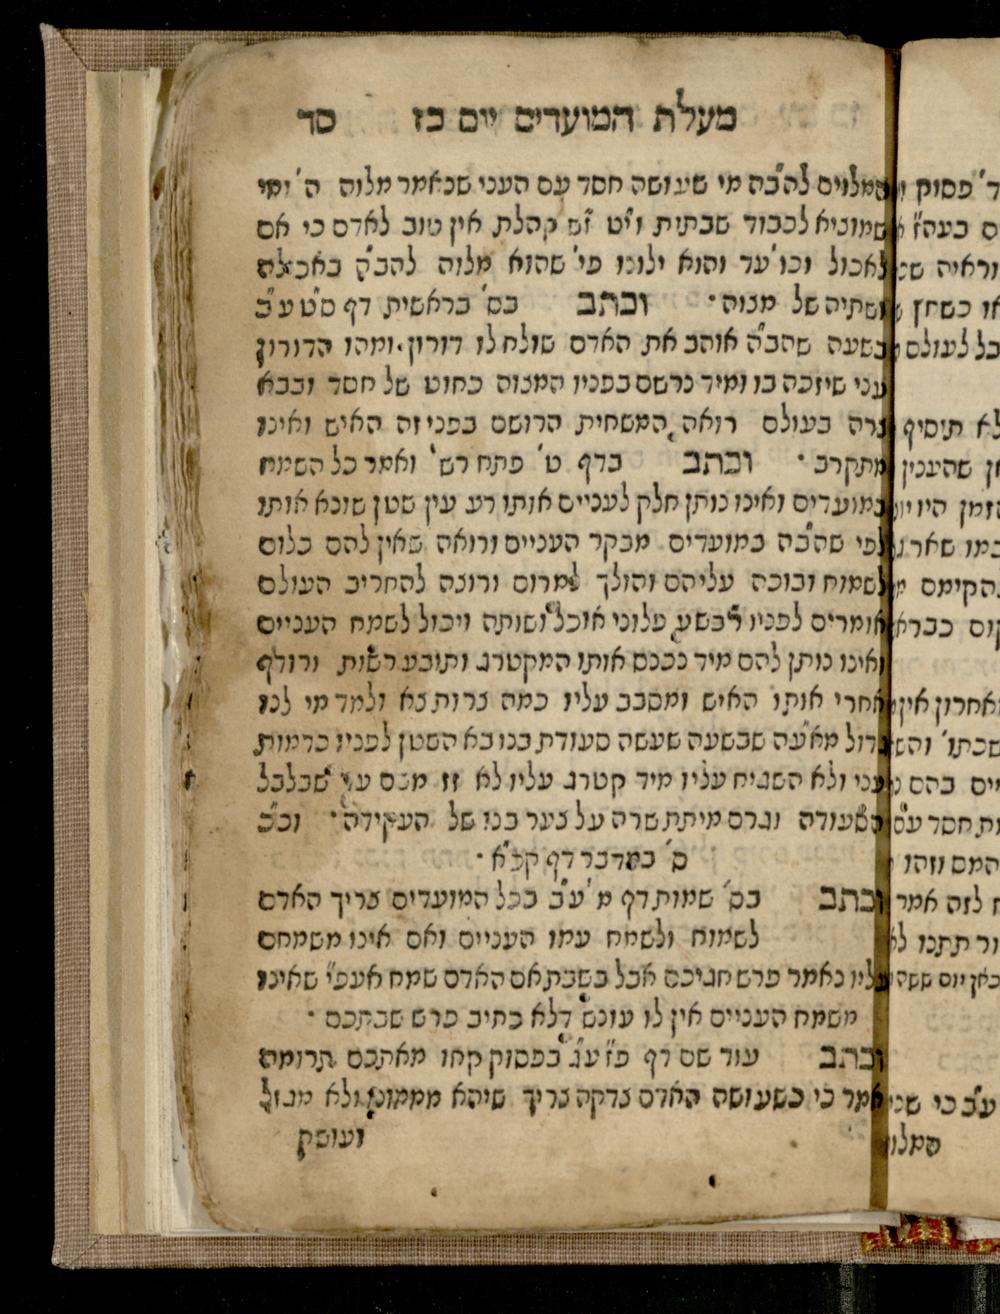 מעלת המועדים יום כז סד
המלוים להב״ה מי שעושה חסד עם העני שנאמר מלוה ה׳ ומי
שמוציא לכבוד שבתות וי״ט ז״ש קהלת אין טוב לאדם כי אם
לאכול וכו׳ עד והוא ילונו פי׳ שהוא מלוה להב״ה באכילה
ושתיה של מצוה · וכתב בס׳ בראשית דף ס״ט ע״ב
בשעה שהב״ה אוהב את האדם שולח לו דורון · ומהו הדורון
עני שיזכה בו ומיד נרשם בפניו המצוה כחוט של חסד ובבא
צרה בעולם רואה המשחית הרושם בפני זה האיש ואינו
מתקרב · וכתב בדף ט׳ פתח רש׳ ואמר כל השמח
במועדים ואינו נותן חלק לעניים אותו רע עין שטן שונא אותו
לפי שהב״ה במועדים מבקר העניים ורואה שאין להם כלום
לשמוח ובוכה עליהם והולך למרום ורוצה להחריב העולם
אומרים לפניו רבש״ע פלוני אוכל ושותה ויכול לשמח העניים
ואינו נותן להם מיד נכנס אותו המקטרג ותובע רשות ורודף
אחרי אותו האיש ומסבב עליו כמה צרות צא ולמד מי לנו
גדול מא״עה שבשעה שעשה סעודת בנו בא השטן לפניו כדמות
עני ולא השגיח עליו מיד קטרג עליו לא זז משם עד שבלבל
הסעודה וגרם מיתת שרה על צער בנו של העקידה · וכ״כ
ס׳ במדבר דף קכ״א ·
וכתב בס׳ שמות דף מ׳ ע״ב בכל המועדים צריך האדם
לשמוח ולשמח עמו העניים ואם אינו משמחם
עליו נאמר פרש חגיכם אבל בשבת אם האדם שמח אעפ״י שאינו
משמח העניים אין לו עונש דלא כתיב פרש שבתכם ·
וכתב עוד שם דף פ״ז ע״ג בפסוק קחו מאתכם תרומה
אמר כי כשעושה האדם צדקה צריך שיהא מממונו ולא מגזל
ועושק